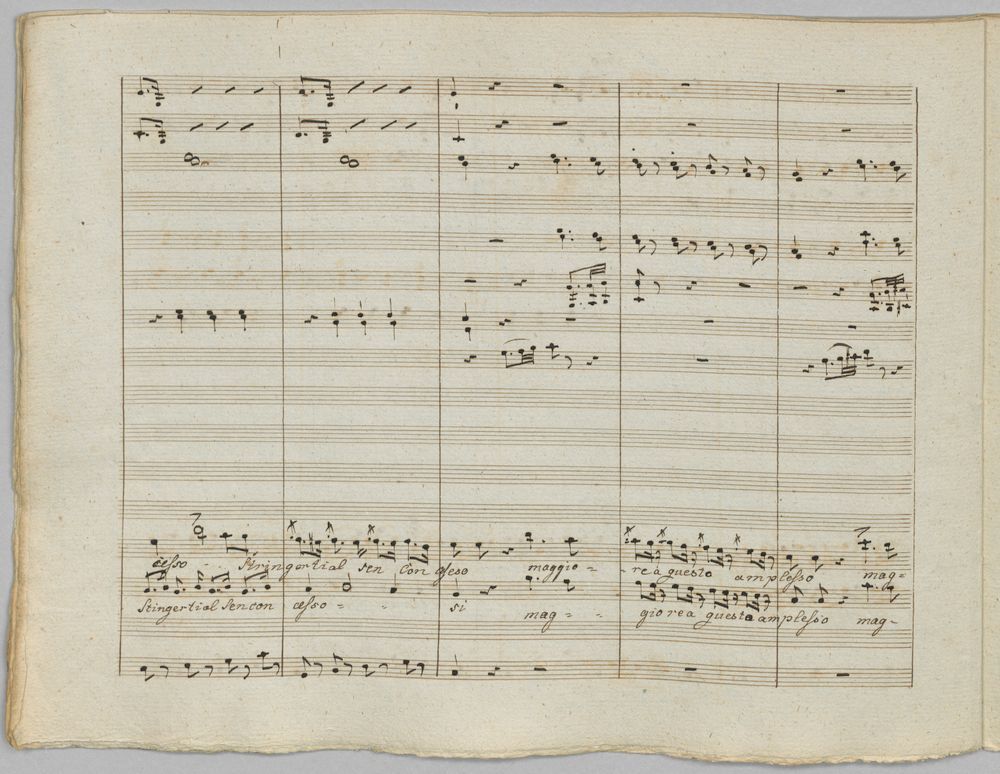 cesso stringertial sen con cesso maggio = = re a questo amplesso mag=
Stingertial sen con cesso = = si mag = = gio re a questo amplesso mag-